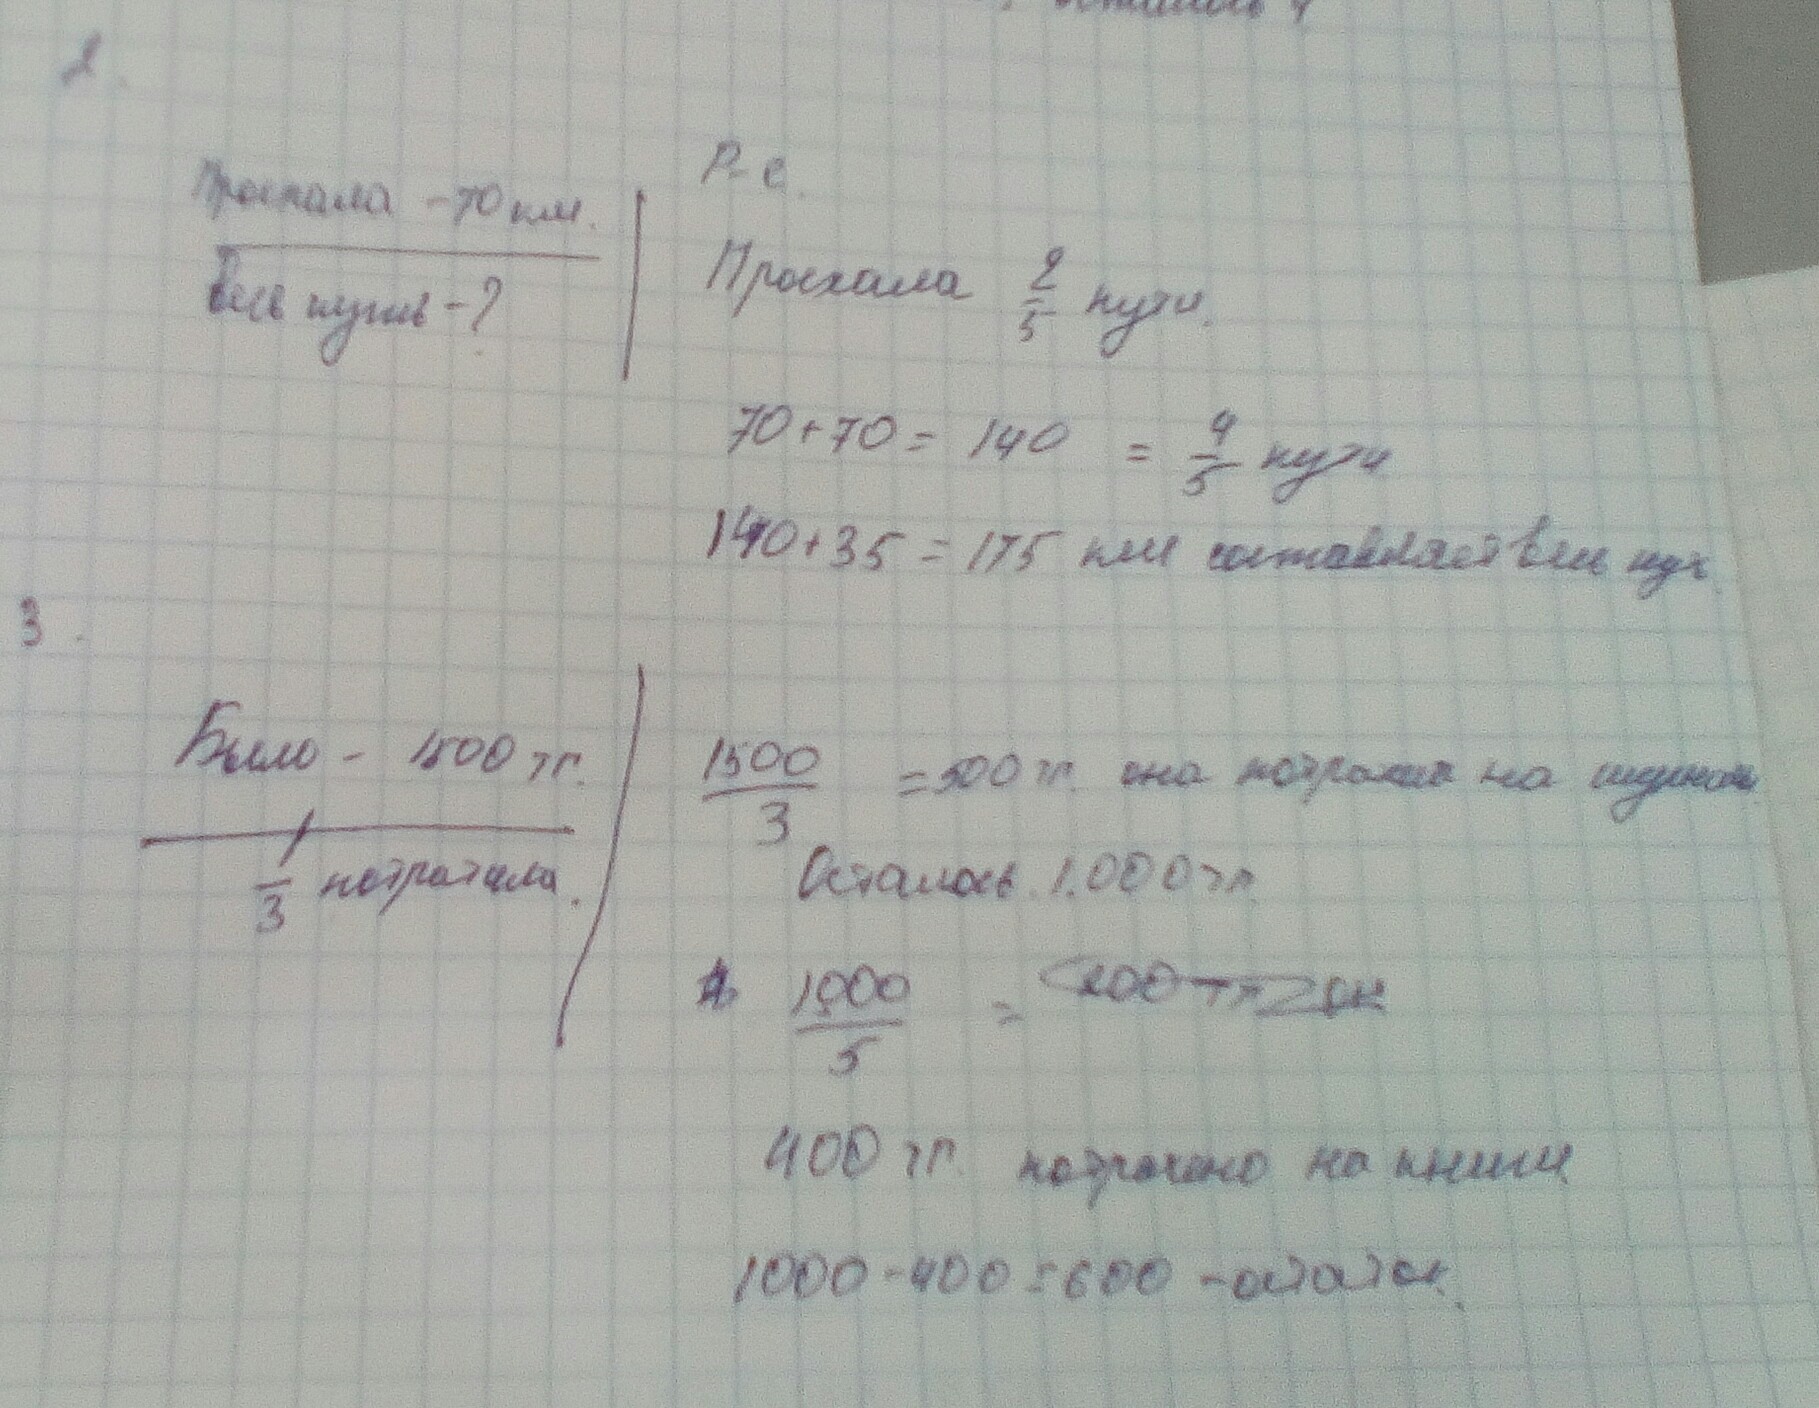 осталось 4
2.
Проехала - 70 км.
Весь путь - ?
Р-е.
Проехала 2/5 пути.
70+70 = 140 = 4/5 пути
140+35 = 175 км составляет весь
3.
Было - 1500 тг.
1/3 потратила.
1500/3 = 500 тг. она потратила на
Осталось 1.000 тг.
1000/5 = 200 тг
400 тг. потрачено на книги
1000 - 400 = 600 - остаток.